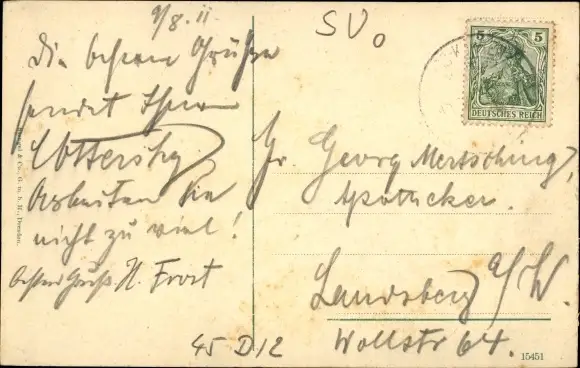 9/8.11
Die besten Grüße
sendet Ihnen
Arbeiten Sie
nicht zu viel!
besten Gruß H. Frost
SV0
5 5
DEUTSCHES REICH
Hr. Georg Mertsching,
Apotheker.
Landsberg a/W.
Wollstr 64.
45 D12
& Co., G. m. b. H., Dresden.
15451